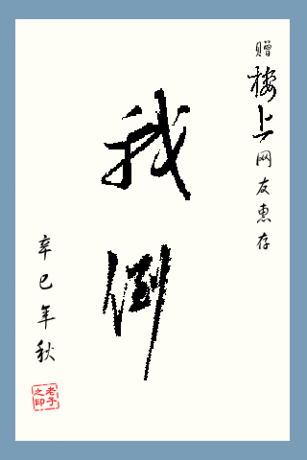 赠楼上网友惠存
我倒
辛巳年秋
老子之印